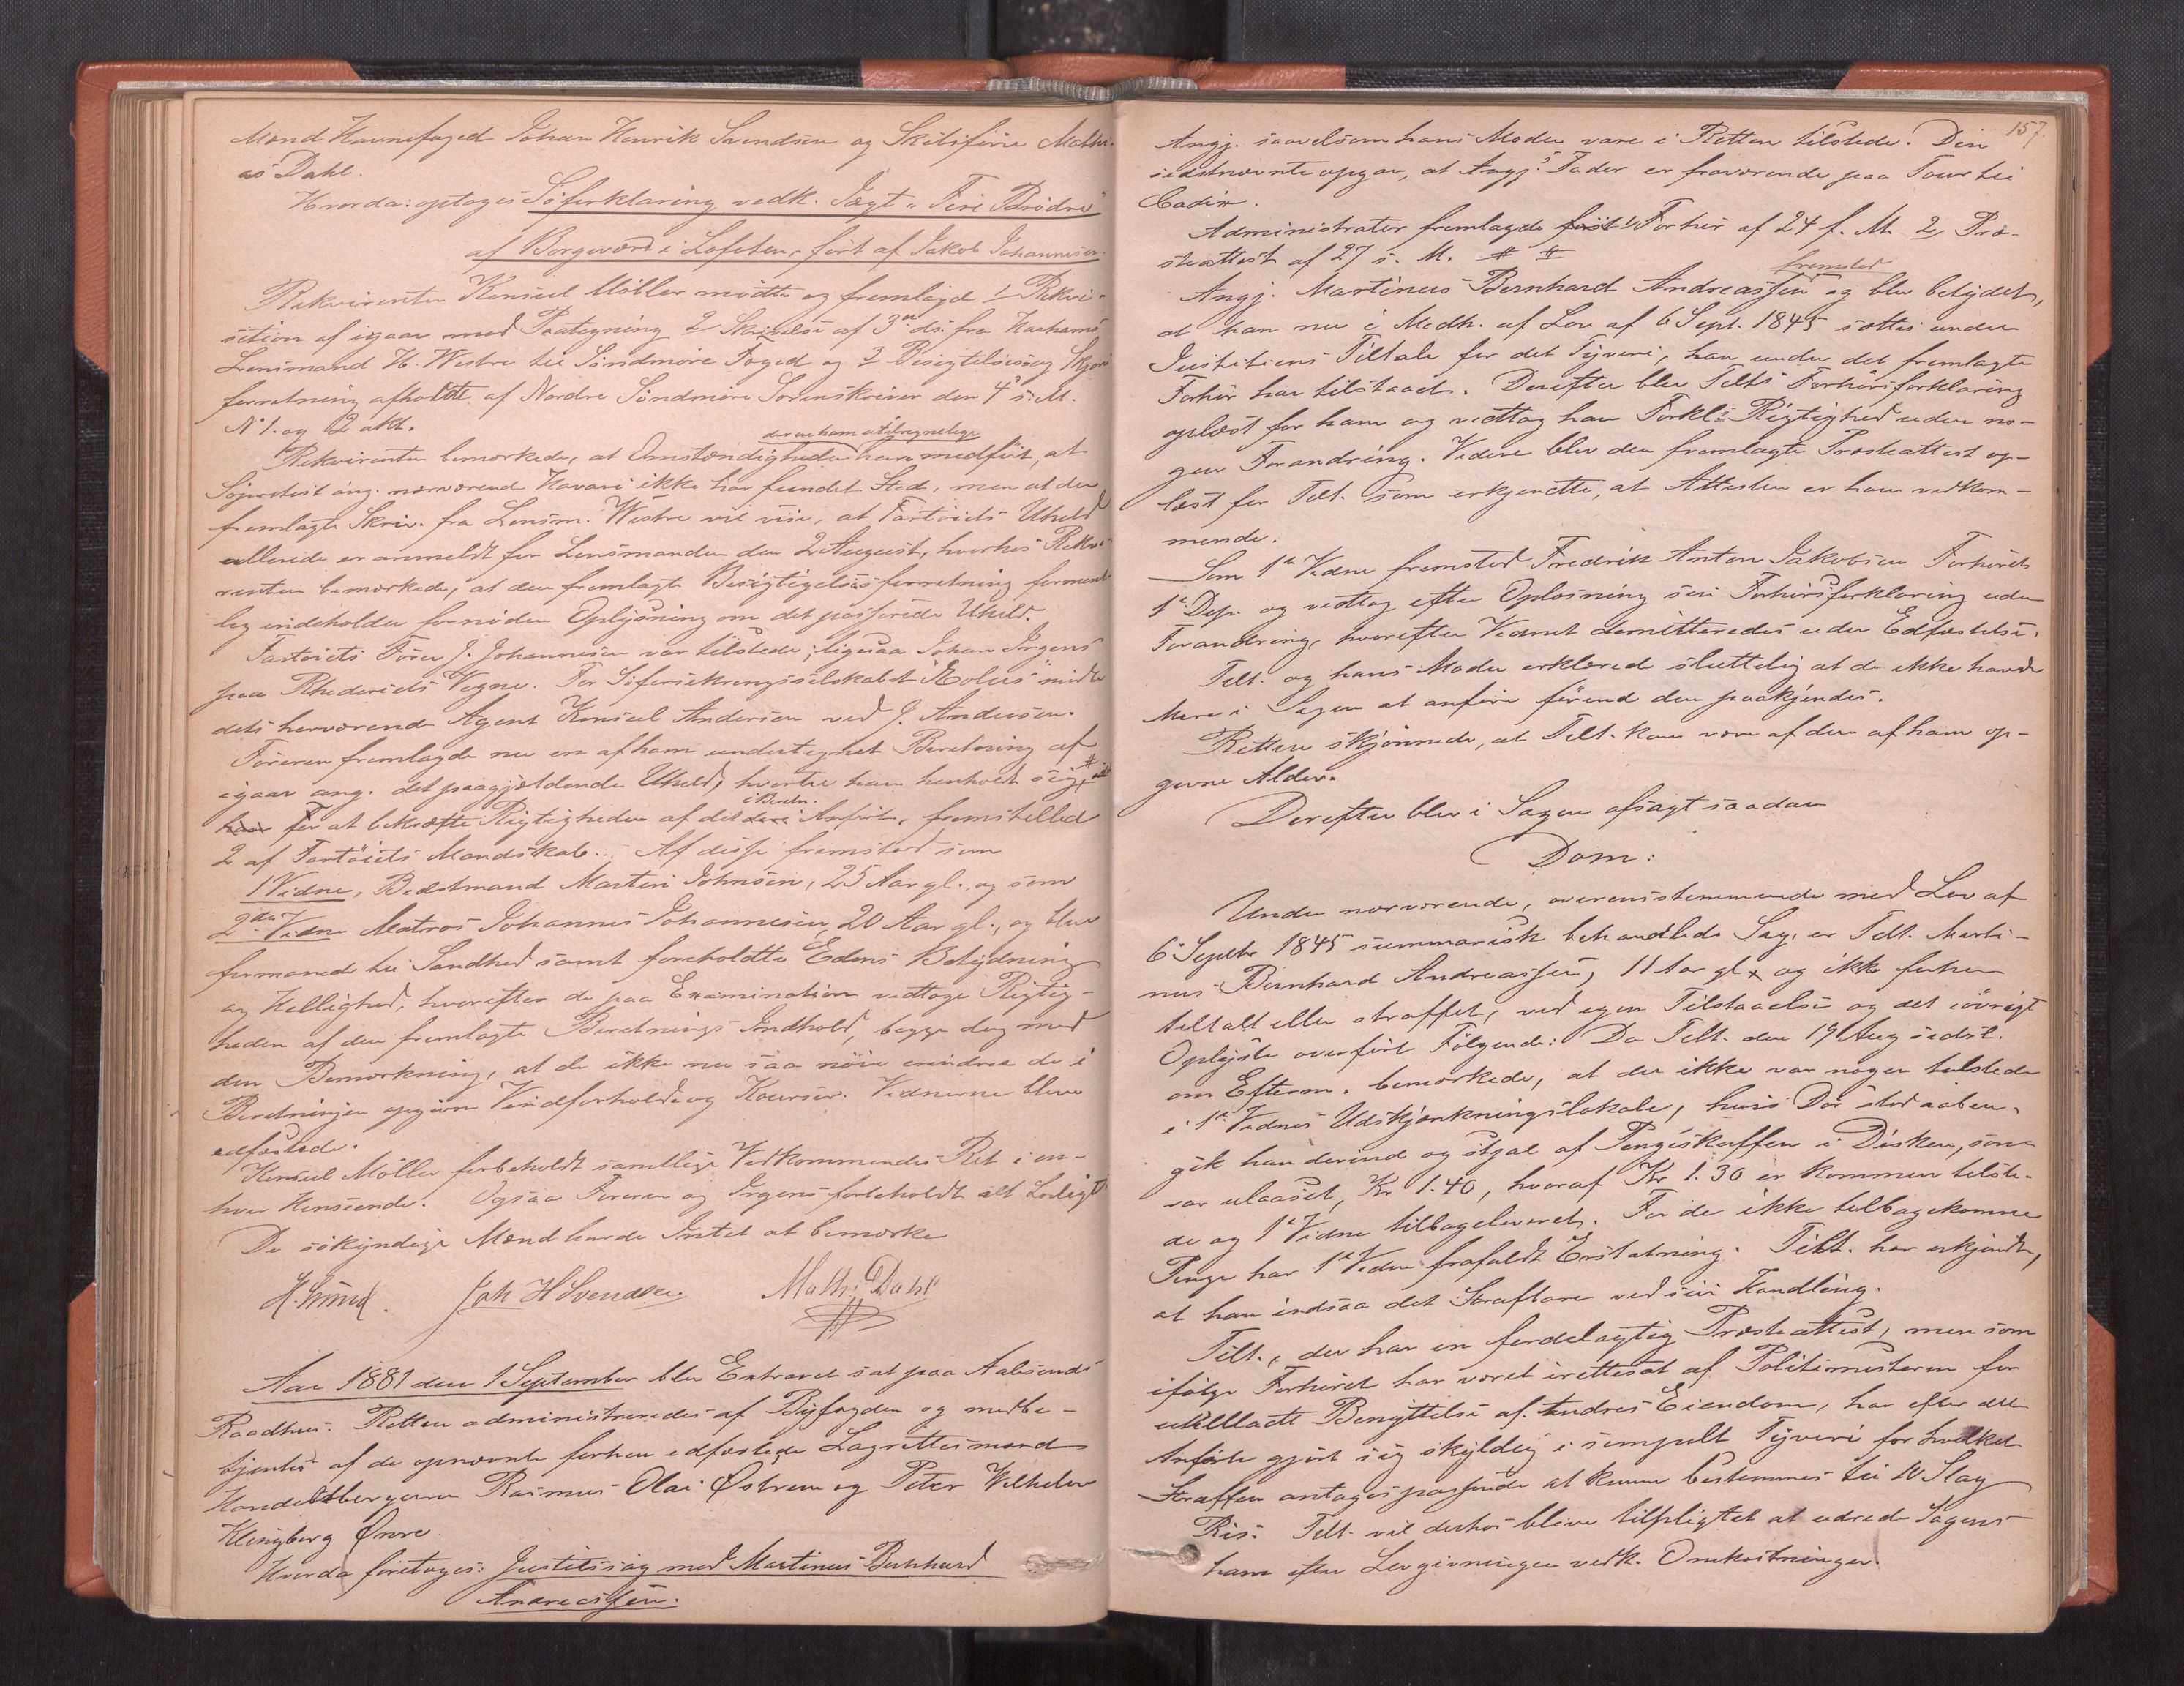 Mænd Havnefoged Johan Henrik Svendsen og Skibsfører Mathi-
as Dahl.
Hvorda: optoges Søforklaring vedk. Jægt "Fire Brødre"
af Borgevær i Lofoten, ført af Jakob Johannesen.
Rekvirenten Konsul Møller mødte og fremlagde 1 Rekvi-
sition af igaar med Paategning 2 Skrivelse af 3die ds. fra Harhams
Lensmand H. Westre til Søndmøre Foged og 3 Besigtelses og Skjøns
forretning afholdt af Nordre Søndmøre Sorenskriver den 4de s. M.
No 1. og 2 akt.
Rekvirenten bemærkede, at Omstændigheder, der ere ham utilregnelige have medført, at
Søprotest ang. nærværende Havari ikke har fundet Sted, men at den
fremlagte Skriv. fra Lensm. Westre vil vise, at Fartøiets Uheld
allerede er anmeldt for Lensmanden den 2 August, hvorhos Rekvi-
renten bemærkede, at den fremlagte Besigtigelsesforretning forment-
lig indeholder fornøden Oplysning om det passerede Uheld.
Fartøiets Fører J. Johannesen var tilstede; ligesaa Johan Irgens
paa Rhederiets Vegne. For Søforsikringsselskabet "Æolus" mødte
dets herværende Agent Konsul Andersen ved J. Andersen.
Føreren fremlagde nu en af ham undertegnet Beretning af
igaar ang. det paagjældende Uheld, hvortil han henholdt sig,
for at bekræfte Rigtigheden af det i Beretn. Anført, fremstilled
2 af Fartøiets Mandskab. Af disse fremstod som
1 Vidne, Bedstmand Martin Johnsen, 25 Aar gl., og som
2det Vidne Matros Johannes Johannesen, 20 Aar gl., og blev
formanede til Sandhed samt foreholdte Edens Betydning
og Hellighed, hvorefter de paa Examination vedtoge Rigtig-
heden af den fremlagte Beretnings Indhold, begge dog med
den Bemærkning, at de ikke nu saa nøie erindrer de i
Beretningen opgivne Vindforholde og Kourser. Vidnerne bleve
edfæstede.
Konsul Møller forbeholdt samtlige Vedkommendes Ret i en-
hver Henseende. Ogsaa Føreren og Irgens forbeholdt alt Lovligt.
De søkyndige Mænd havde Intet at bemærke
Joh H Svendsen. Maths Dahl
Aar 1881 den 1 September blev Extraret sat paa Aalesunds
Raadhus. Retten administreredes af Byfogden og medbe-
tjentes af de opnævnte forhen edfæstede Lagrettesmænd
Handelsborgerne Rasmus Olai Østrem og Peter Wilhelm
Klingberg Ønre.
Hvorda foretoges: Justitssag mod Martinus Bernhard
Andreassen.
157.
Angj. saavelsom hans Moder vare i Retten tilstede. Den
sidstnævnte opgav, at Angj.s Fader er fraværende paa Tour til
Cadix.
Administrator fremlagde 1, Forhør af 24 f. M. 2, Præ-
steattest af 27 s. M.
Angj. Martinus Bernhard Andreassen fremstod og blev betydet,
at han nu i Medh. af Lov af 6 Sept. 1845 sættes under
Justitiens Tiltale for det Tyveri, han under det fremlagte
Forhør har tilstaaet. Derefter blev Telts Forhørsforklaring
oplæst for ham og vedtog han Forkl.s Rigtighed uden no-
gen Forandring. Videre blev den fremlagte Præsteattest op-
læst for Telt. som erkjendte, at Attesten er ham vedkom-
mende.
Som 1ste Vidne fremstod Fredrik Anton Jakobsen Forhørets
1ste Dep. og vedtog efter Oplæsning sin Forhørsforklaring uden
Forandring, hvorefter Vidnet demitteredes uden Edfæstelse.
Telt. og hans Moder erklæred sluttelig at de ikke havde
Mere i Sagen at anføre førend den paakjendes.
Retten skjønnede, at Telt. kan være af den af ham op-
givne Alder.
Derefter blev i Sagen afsagt saadan
Dom:
Under nærværende, overensstemmende med Lov af
6 Septbr 1845 summarisk behandlede Sag, er Telt. Marti-
nus Bernhard Andreassen, 11 Aar gl. og ikke forhen
tiltalt eller straffet, ved egen Tilstaaelse og det iøvrigt
Oplyste overført Følgende: Da Telt. den 19 Aug sidstl.
om Efterm. bemærkede, at der ikke var nogen tilstede
i 1ste Vidnes Udskjænkningslokale, hvis Dør stod aaben,
gik han derind og stjal af Pengeskuffen i Disken, som
var ulaaset, Kr 1.40, hvoraf Kr 1.30 er kommen tilste-
de og 1ste Vidne tilbageleveret. For de ikke tilbagekomne
Penge har 1ste Vidne frafaldt Erstatning. Telt. har erkjendt,
at han indsaa det Strafbare ved sin Handling.
Telt., der har en fordelagtig Præsteattest, men som
ifølge Forhøret har været irettesat af Politimesteren for
utilladt Benyttelse af Andres Eiendom, har efter det
Anførte gjort sig skyldig i simpelt Tyveri for hvilket
Straffen antages passende at kunne bestemmes til 10 Slag
Ris. Telt. vil derhos blive tilpligtet at udrede Sagens
ham efter Lovgivningen vedk. Omkostninger.